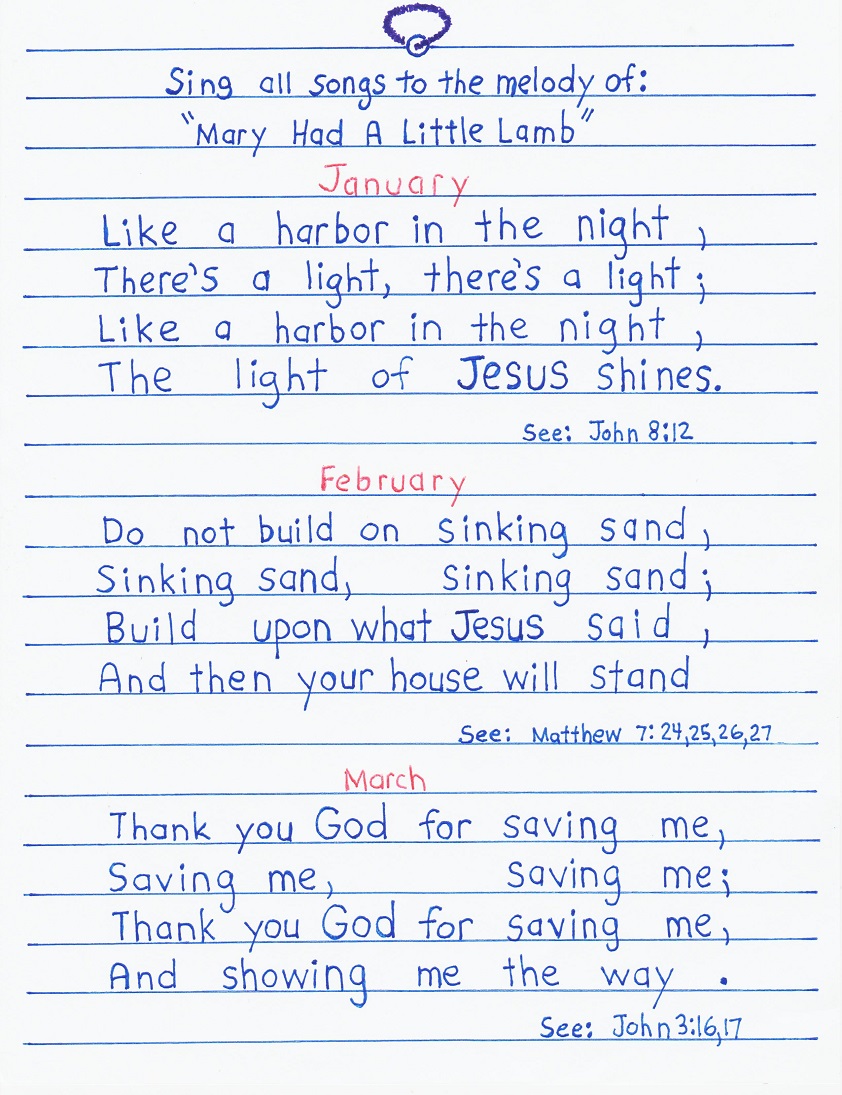 Sing all songs to the melody of:
"Mary Had A Little Lamb"
January
Like a harbor in the night,
There's a light, there's a light;
Like a harbor in the night,
The light of Jesus shines.
See: John 8:12
February
Do not build on sinking sand,
Sinking sand, sinking sand;
Build upon what Jesus said,
And then your house will stand
See: Matthew 7:24,25,26,27
March
Thank you God for saving me,
Saving me, saving me;
Thank you God for saving me,
And showing me the way.
See: John 3:16,17